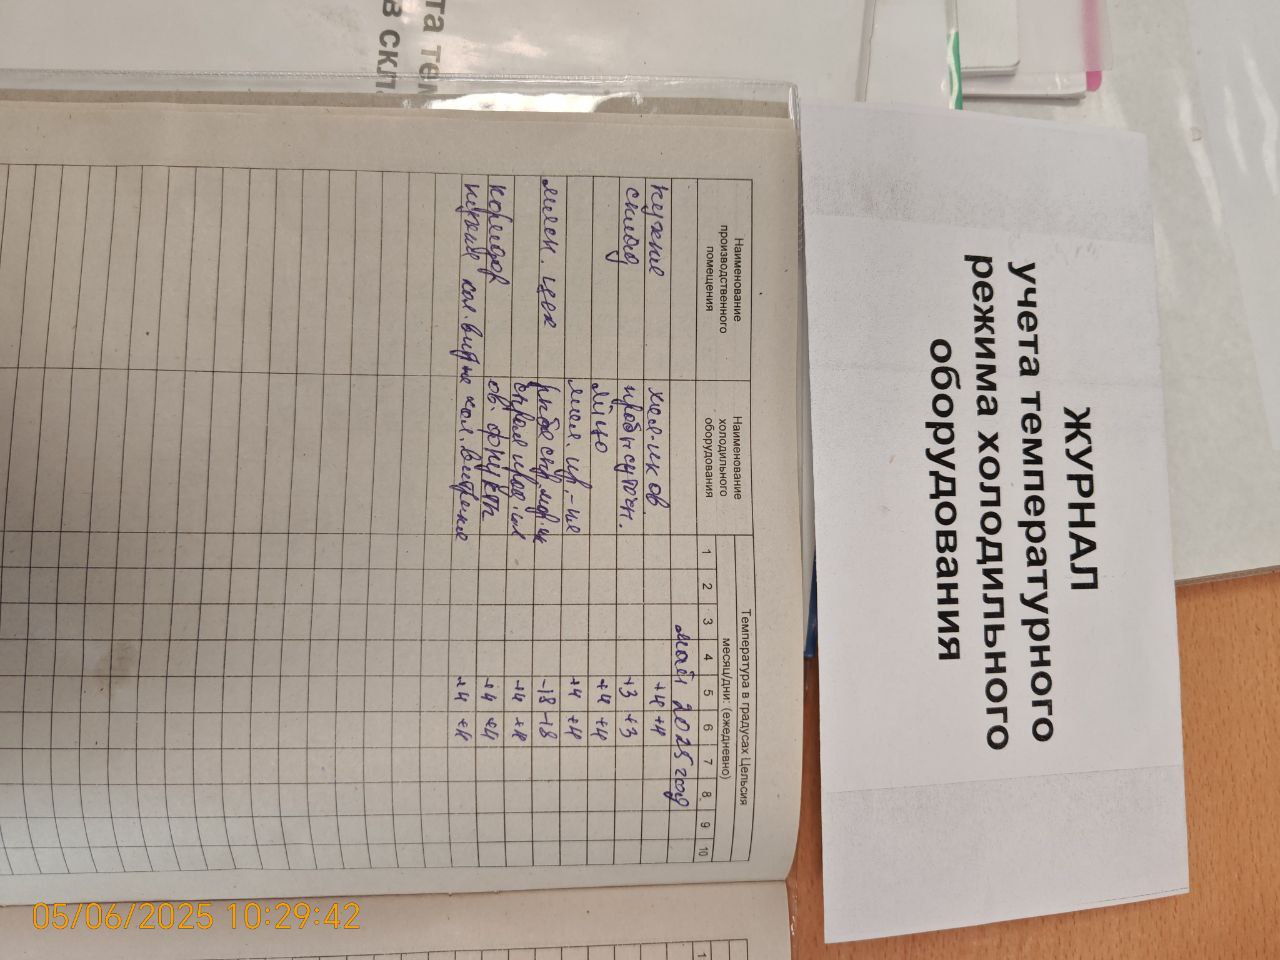 та те
в скл
ЖУРНАЛ
учета температурного
режима холодильного
оборудования
Наименование производственного помещения
Наименование холодильного оборудования
Температура в градусах Цельсия
месяц/дни: (ежедневно)
1 2 3 4 5 6 7 8 9 10
май 2025 год
кухня +4 +4
склад +3 +3
яйцо +4 +4
+4 +4
мясн. цех рыба -18 -18
+4 +4
коридор ов. фрукты +4 +4
+4 +4
1
05/06/2025 10:29:42